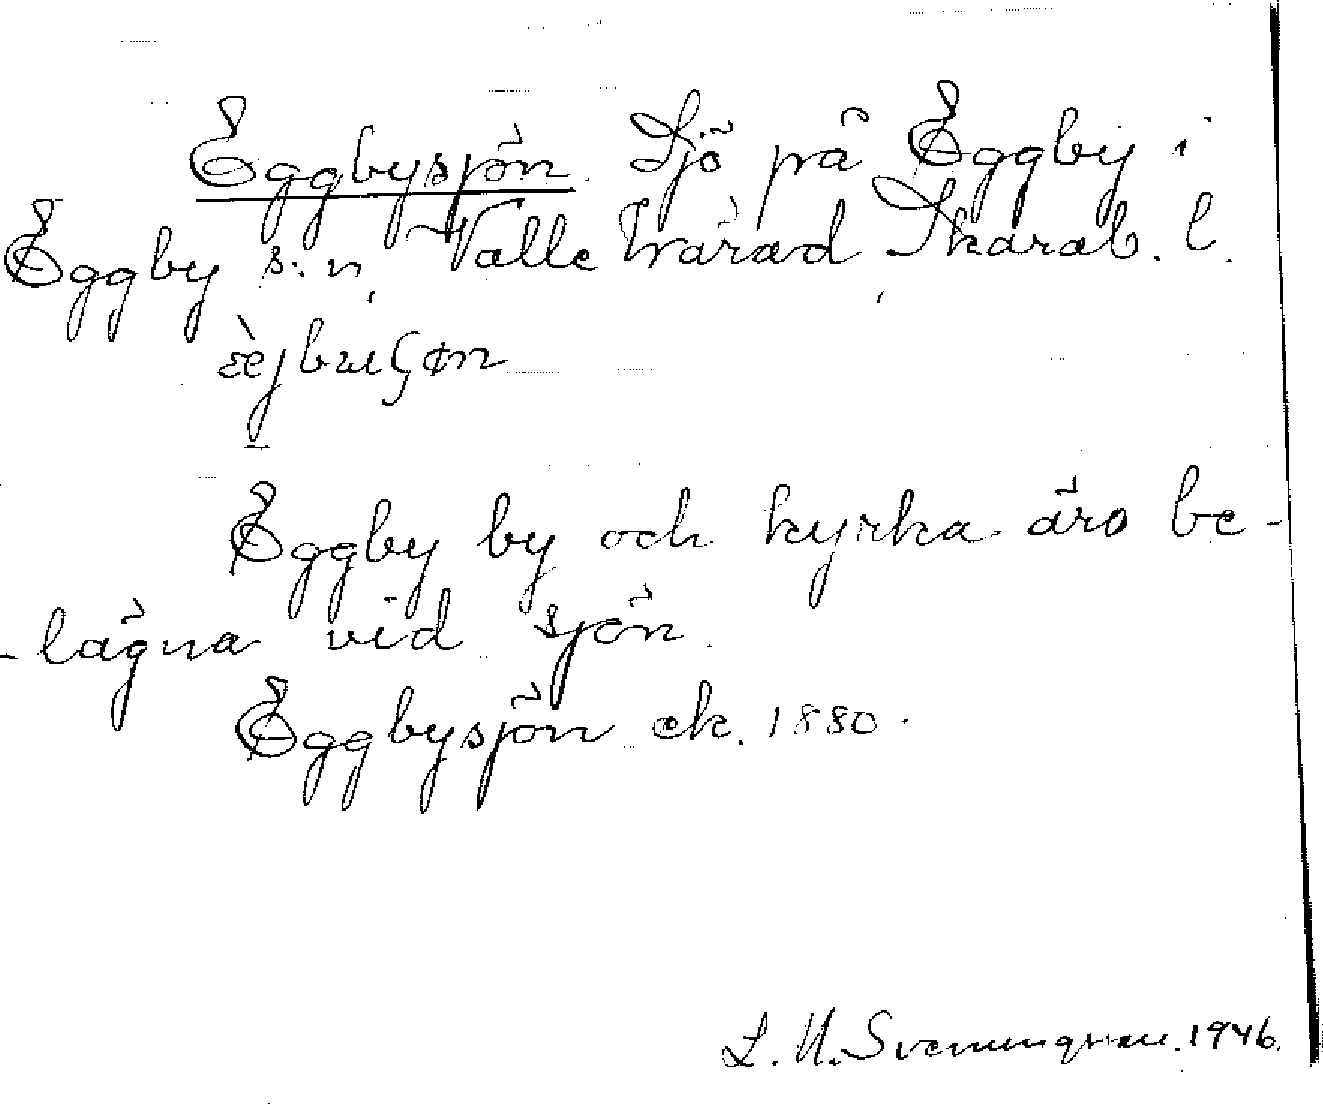 Eggbysjön. Sjö på Eggby i
Eggby s:n, Valle härad, Skarab. l.
æ̀jbyʃøn
Eggby by och kyrka äro be-
-lägna vid sjön.
Eggbysjön ek. 1880.
L. N. Svenungsson. 1946.